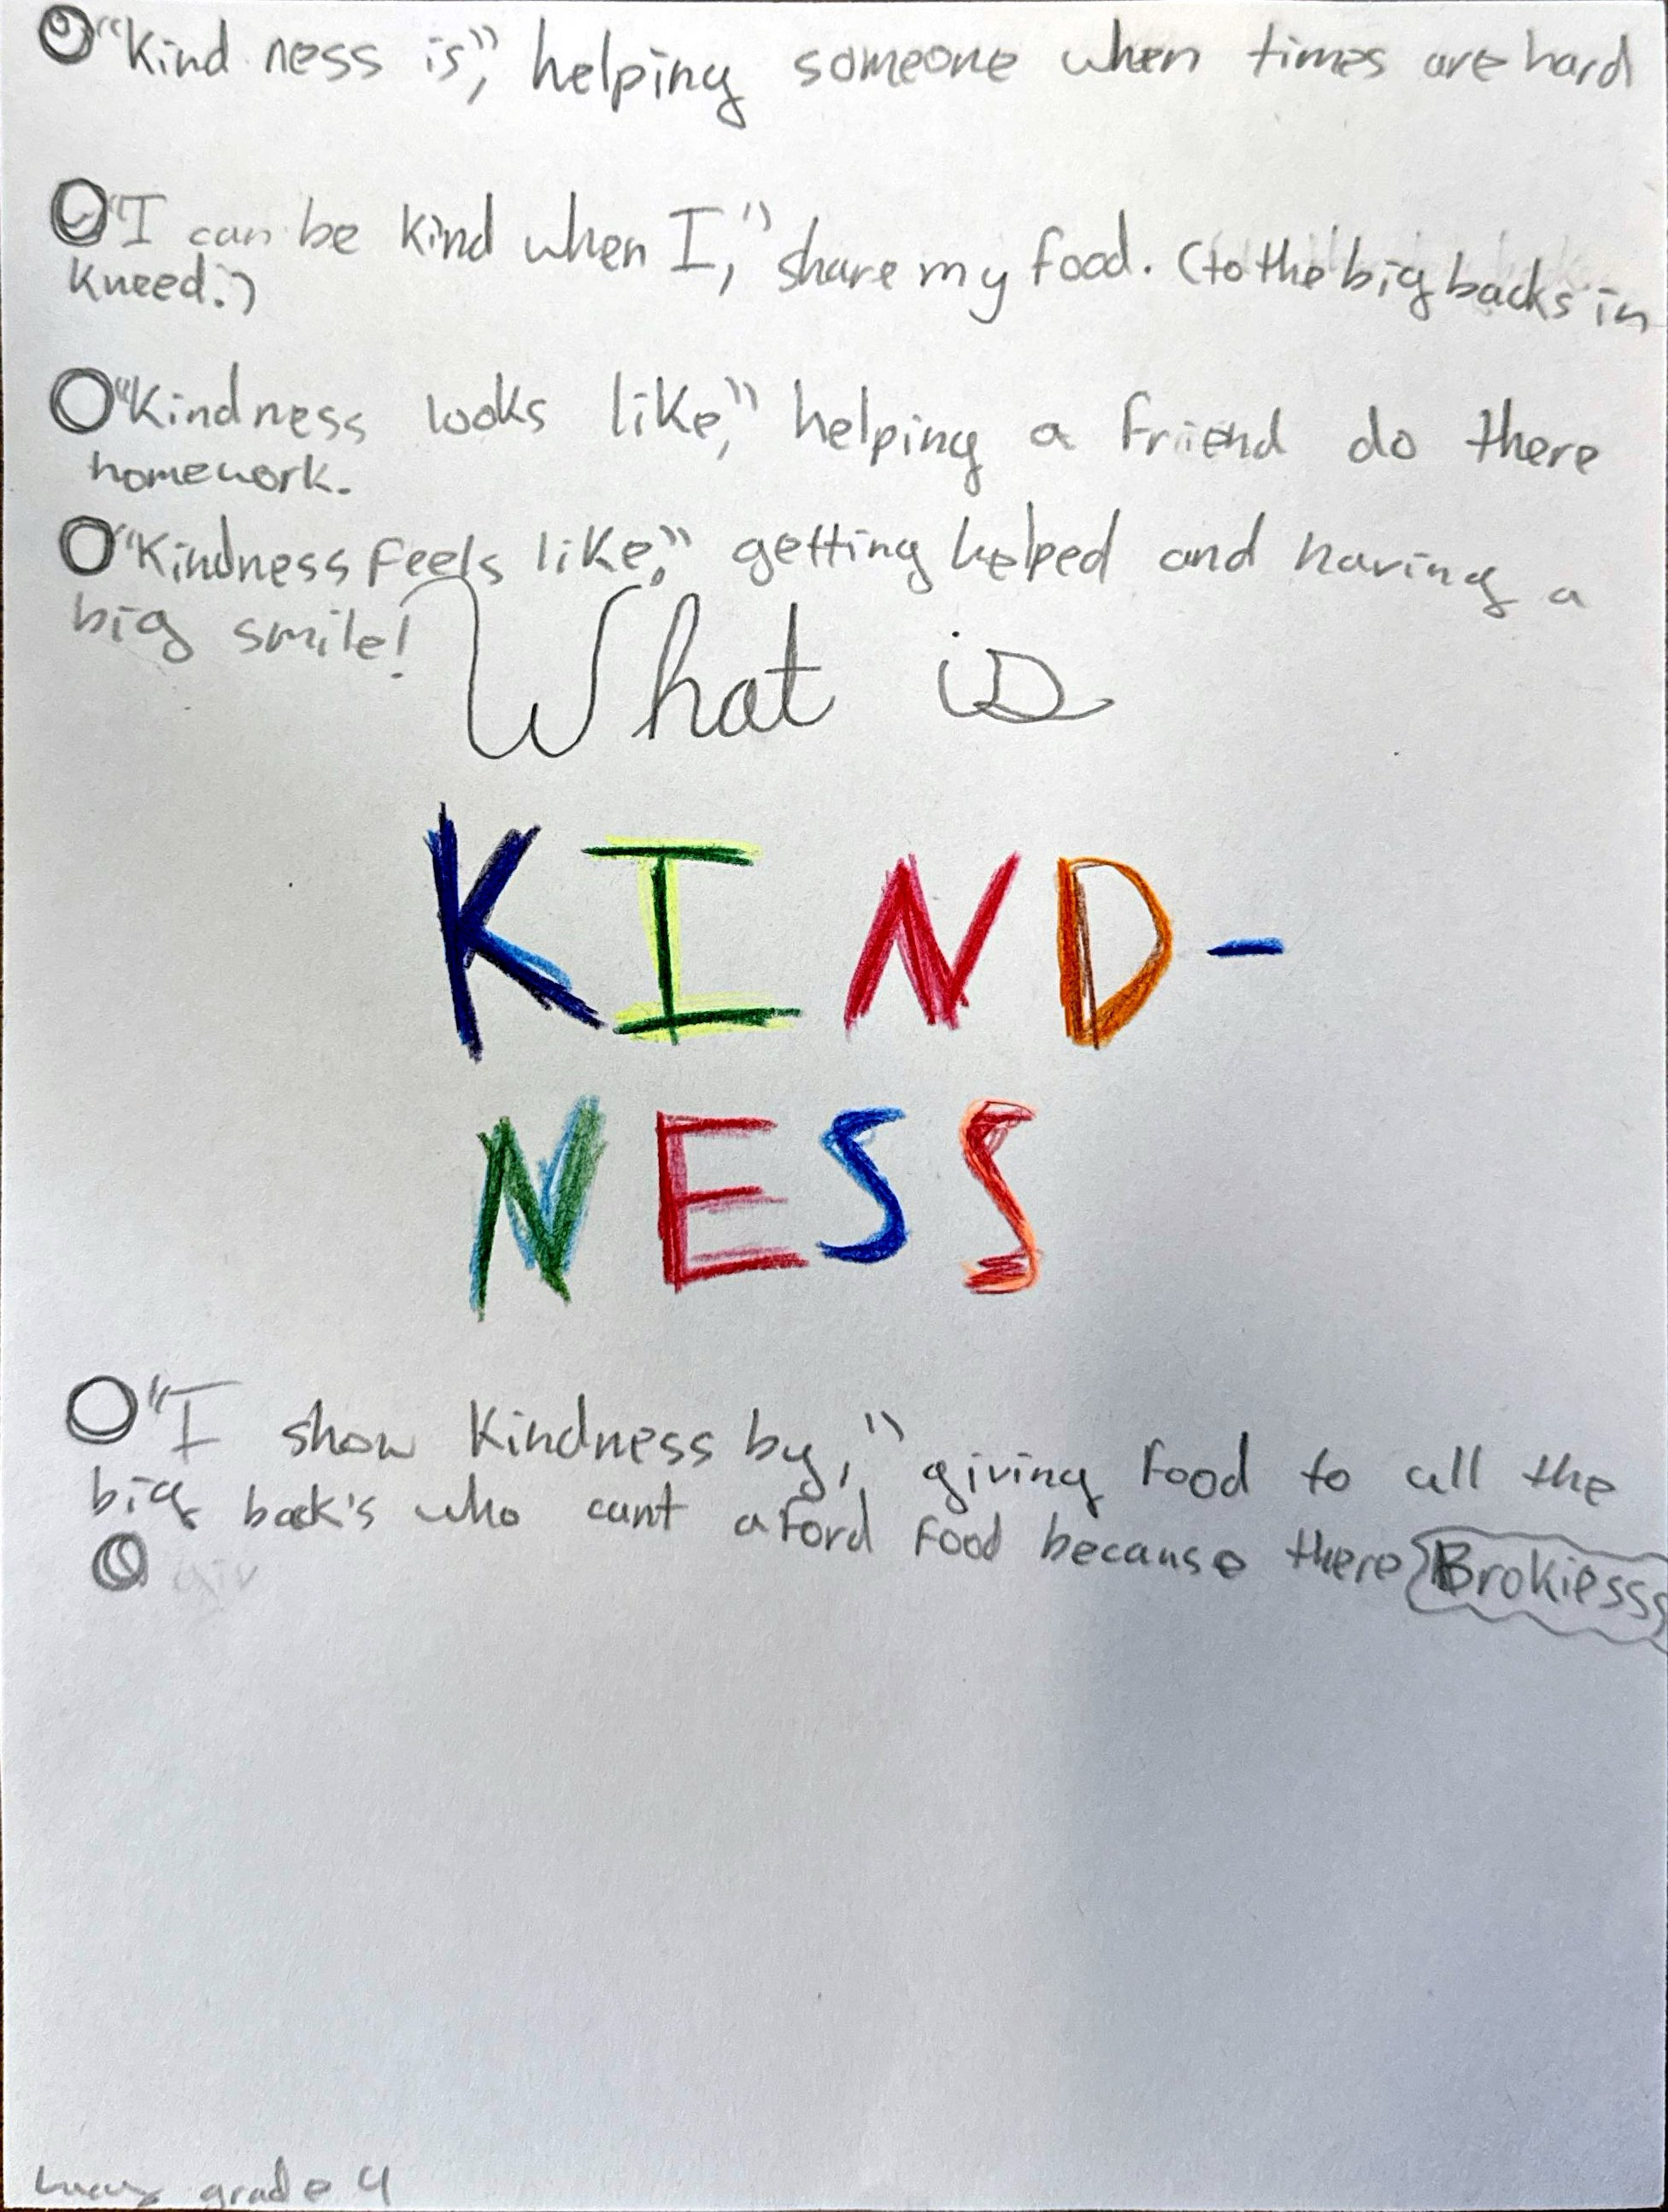 "Kind ness is", helping someone when times are hard
"I can be kind when I," share my food. (to the big backs in
kneed.)
"Kindness looks like," helping a friend do there
homework.
"Kindness feels like," getting helped and having a
big smile!
What is
KIND-
NESS
"I show kindness by," giving food to all the
big back's who cant aford food because there Brokiesss
giv
grade 4